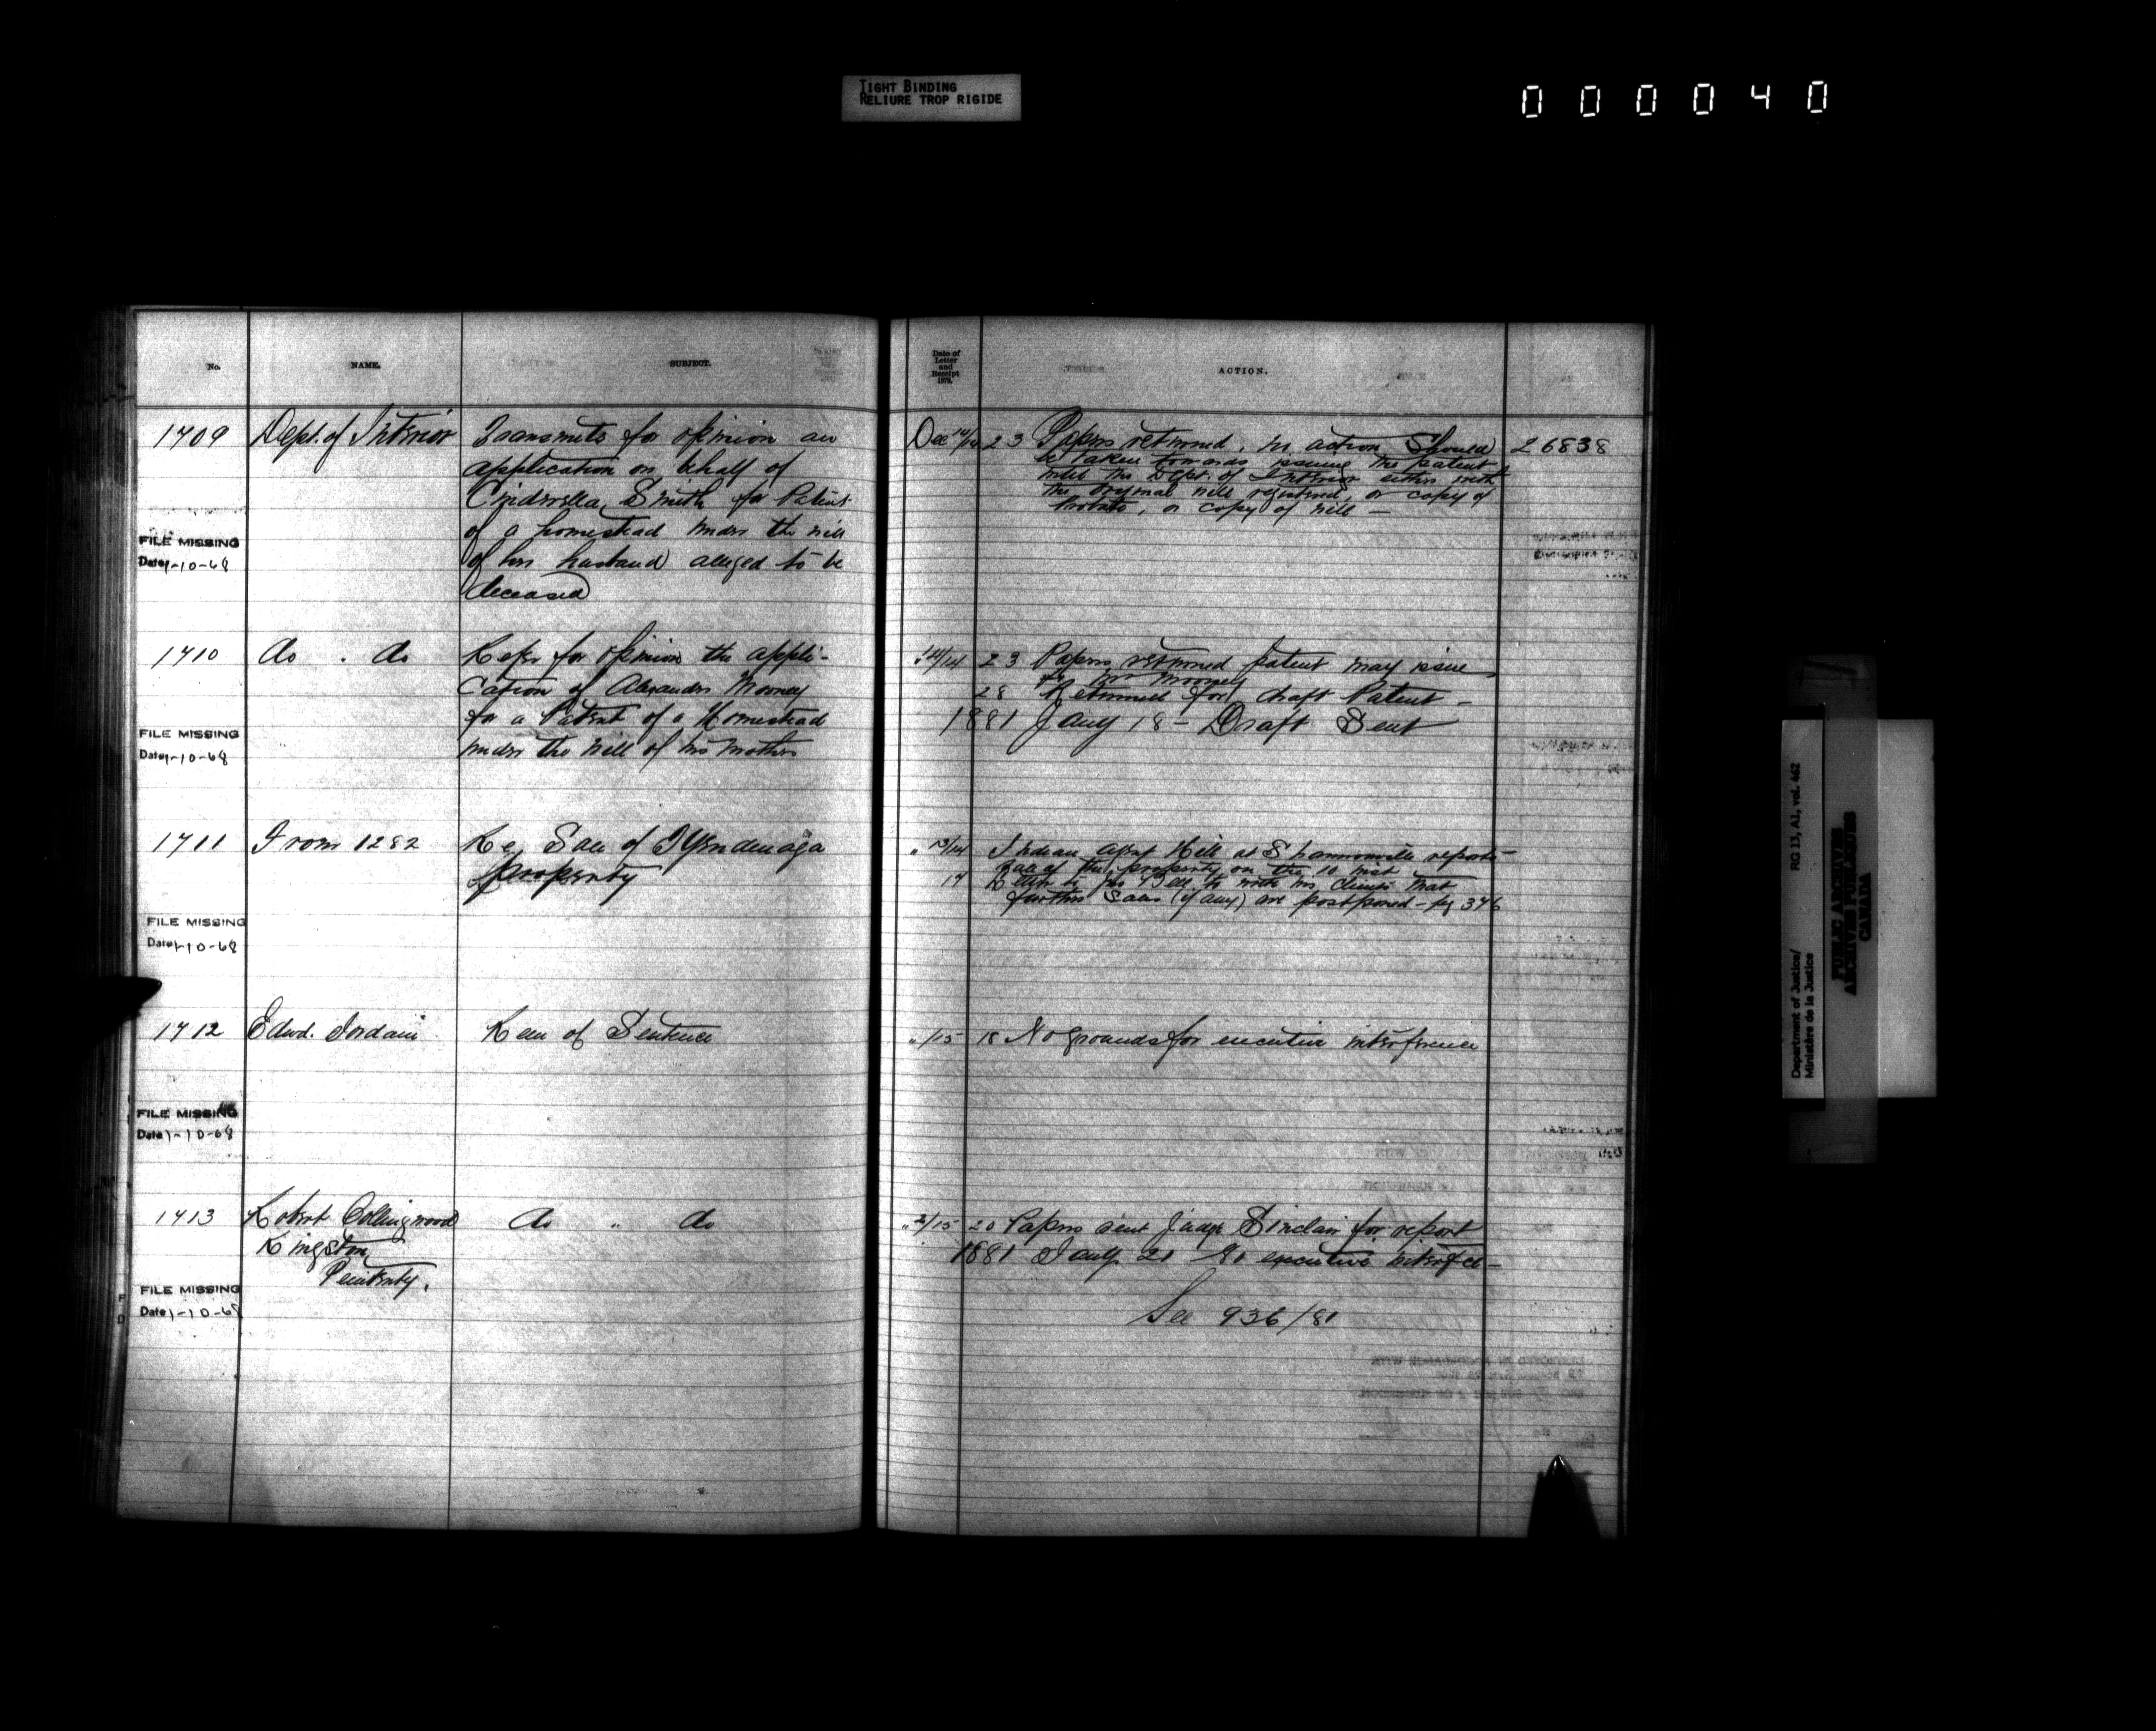 TIGHT BINDING
RELIURE TROP RIGIDE
000040
No.
NAME.
SUBJECT.
Date of
Letter
and
Receipt
1879.
ACTION.
1709
Dept. of Interior
Transmits for opinion an
application on behalf of
Cinderella Smith for Patent
of a homestead under the will
of her husband alleged to be
deceased
Dec 14/14
23 Papers returned, no action should
be taken towards issuing the patent
until the Dept. of Interior either with
the original will registered, or copy of
Probate, or copy of will —
26838
FILE MISSING
Date 1-10-68
1710
do . do
Refer for opinion the appli-
cation of Alexander Mooney
for a Patent of a Homestead
under the will of his mother
" 14/14
23 Papers returned patent may issue
to Mr Mooney
28 Returned for draft Patent -
1881 Jany 18 - Draft Sent
FILE MISSING
Date 1-10-68
1711
From 1282
Re Sale of Tyendenaga
property
" 13/14
Indian Agent Hill at Shannonville reports
sale of the property on the 10 inst
17 Letter to Jno Bell to his clients that
further Sales (if any) are postponed - pg 376
FILE MISSING
Date 1-10-68
1712
Edwd. Jordain
Rem of Sentence
" /15
18 No grounds for executive interference
FILE MISSING
Date 1-10-68
1713
Robert Collingwood
Kingston
Penitenty.
do " do
" 2/15
20 Papers sent Judge Sinclair for report
1881 Jany 21 No executive interfce -
See 936/81
FILE MISSING
Date 1-10-68
Department of Justice/
Ministère de la Justice
RG 13, A1, vol. 462
PUBLIC ARCHIVES
ARCHIVES PUBLIQUES
CANADA